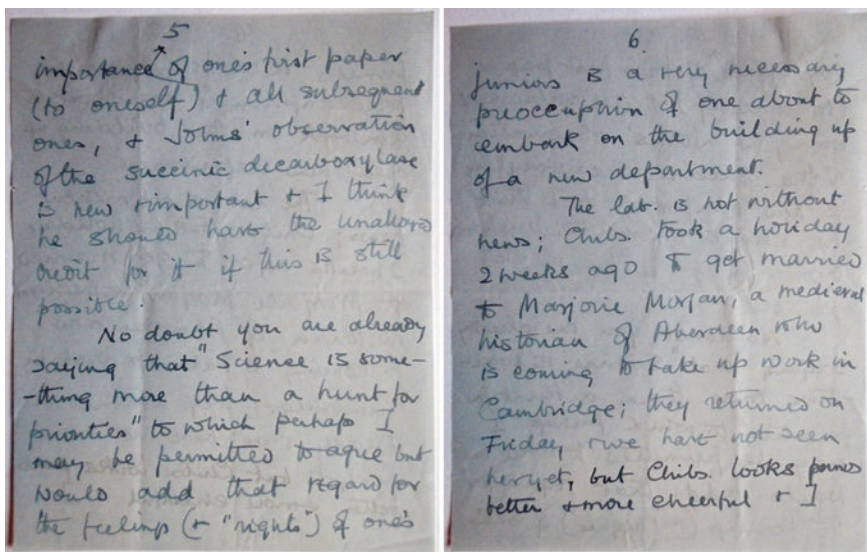 5
importance of one's first paper
(to oneself) & all subsequent
ones, & Johns' observation
of the succinic decarboxylase
is new & important & I think
he should have the unalloyed
credit for it if this is still
possible.
No doubt you are already
saying that "Science is some-
-thing more than a hunt for
priorities" to which perhaps I
may be permitted to agree but
would add that regard for
the feelings (& "rights") of one's
6.
juniors is a very necessary
preoccupation of one about to
embark on the building up
of a new department.
The lab. is not without
news; Chibs. took a holiday
2 weeks ago to get married
to Marjorie Morgan, a medieval
historian of Aberdeen who
is coming to take up work in
Cambridge; they returned on
Friday & we have not seen
her yet, but Chibs. looks
better & more cheerful & I